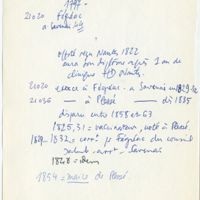 1797 -
21020 Fégréac
à Savenay
officié reçu Nantes 1822
aura son diplôme après 1 an de
clinique HD Nantes.
21020 exerce à Fégréac à Savenay en 1829
21036 — à Plessé — dès 1835
disparu entre 1858 et 63
1825, 31 = vaccinateur, noté à Plessé.
1829-1832 = corresp Fégréac du conseil
salub. arrt Savenay
1848 = idem
1854 = maire de Plessé.